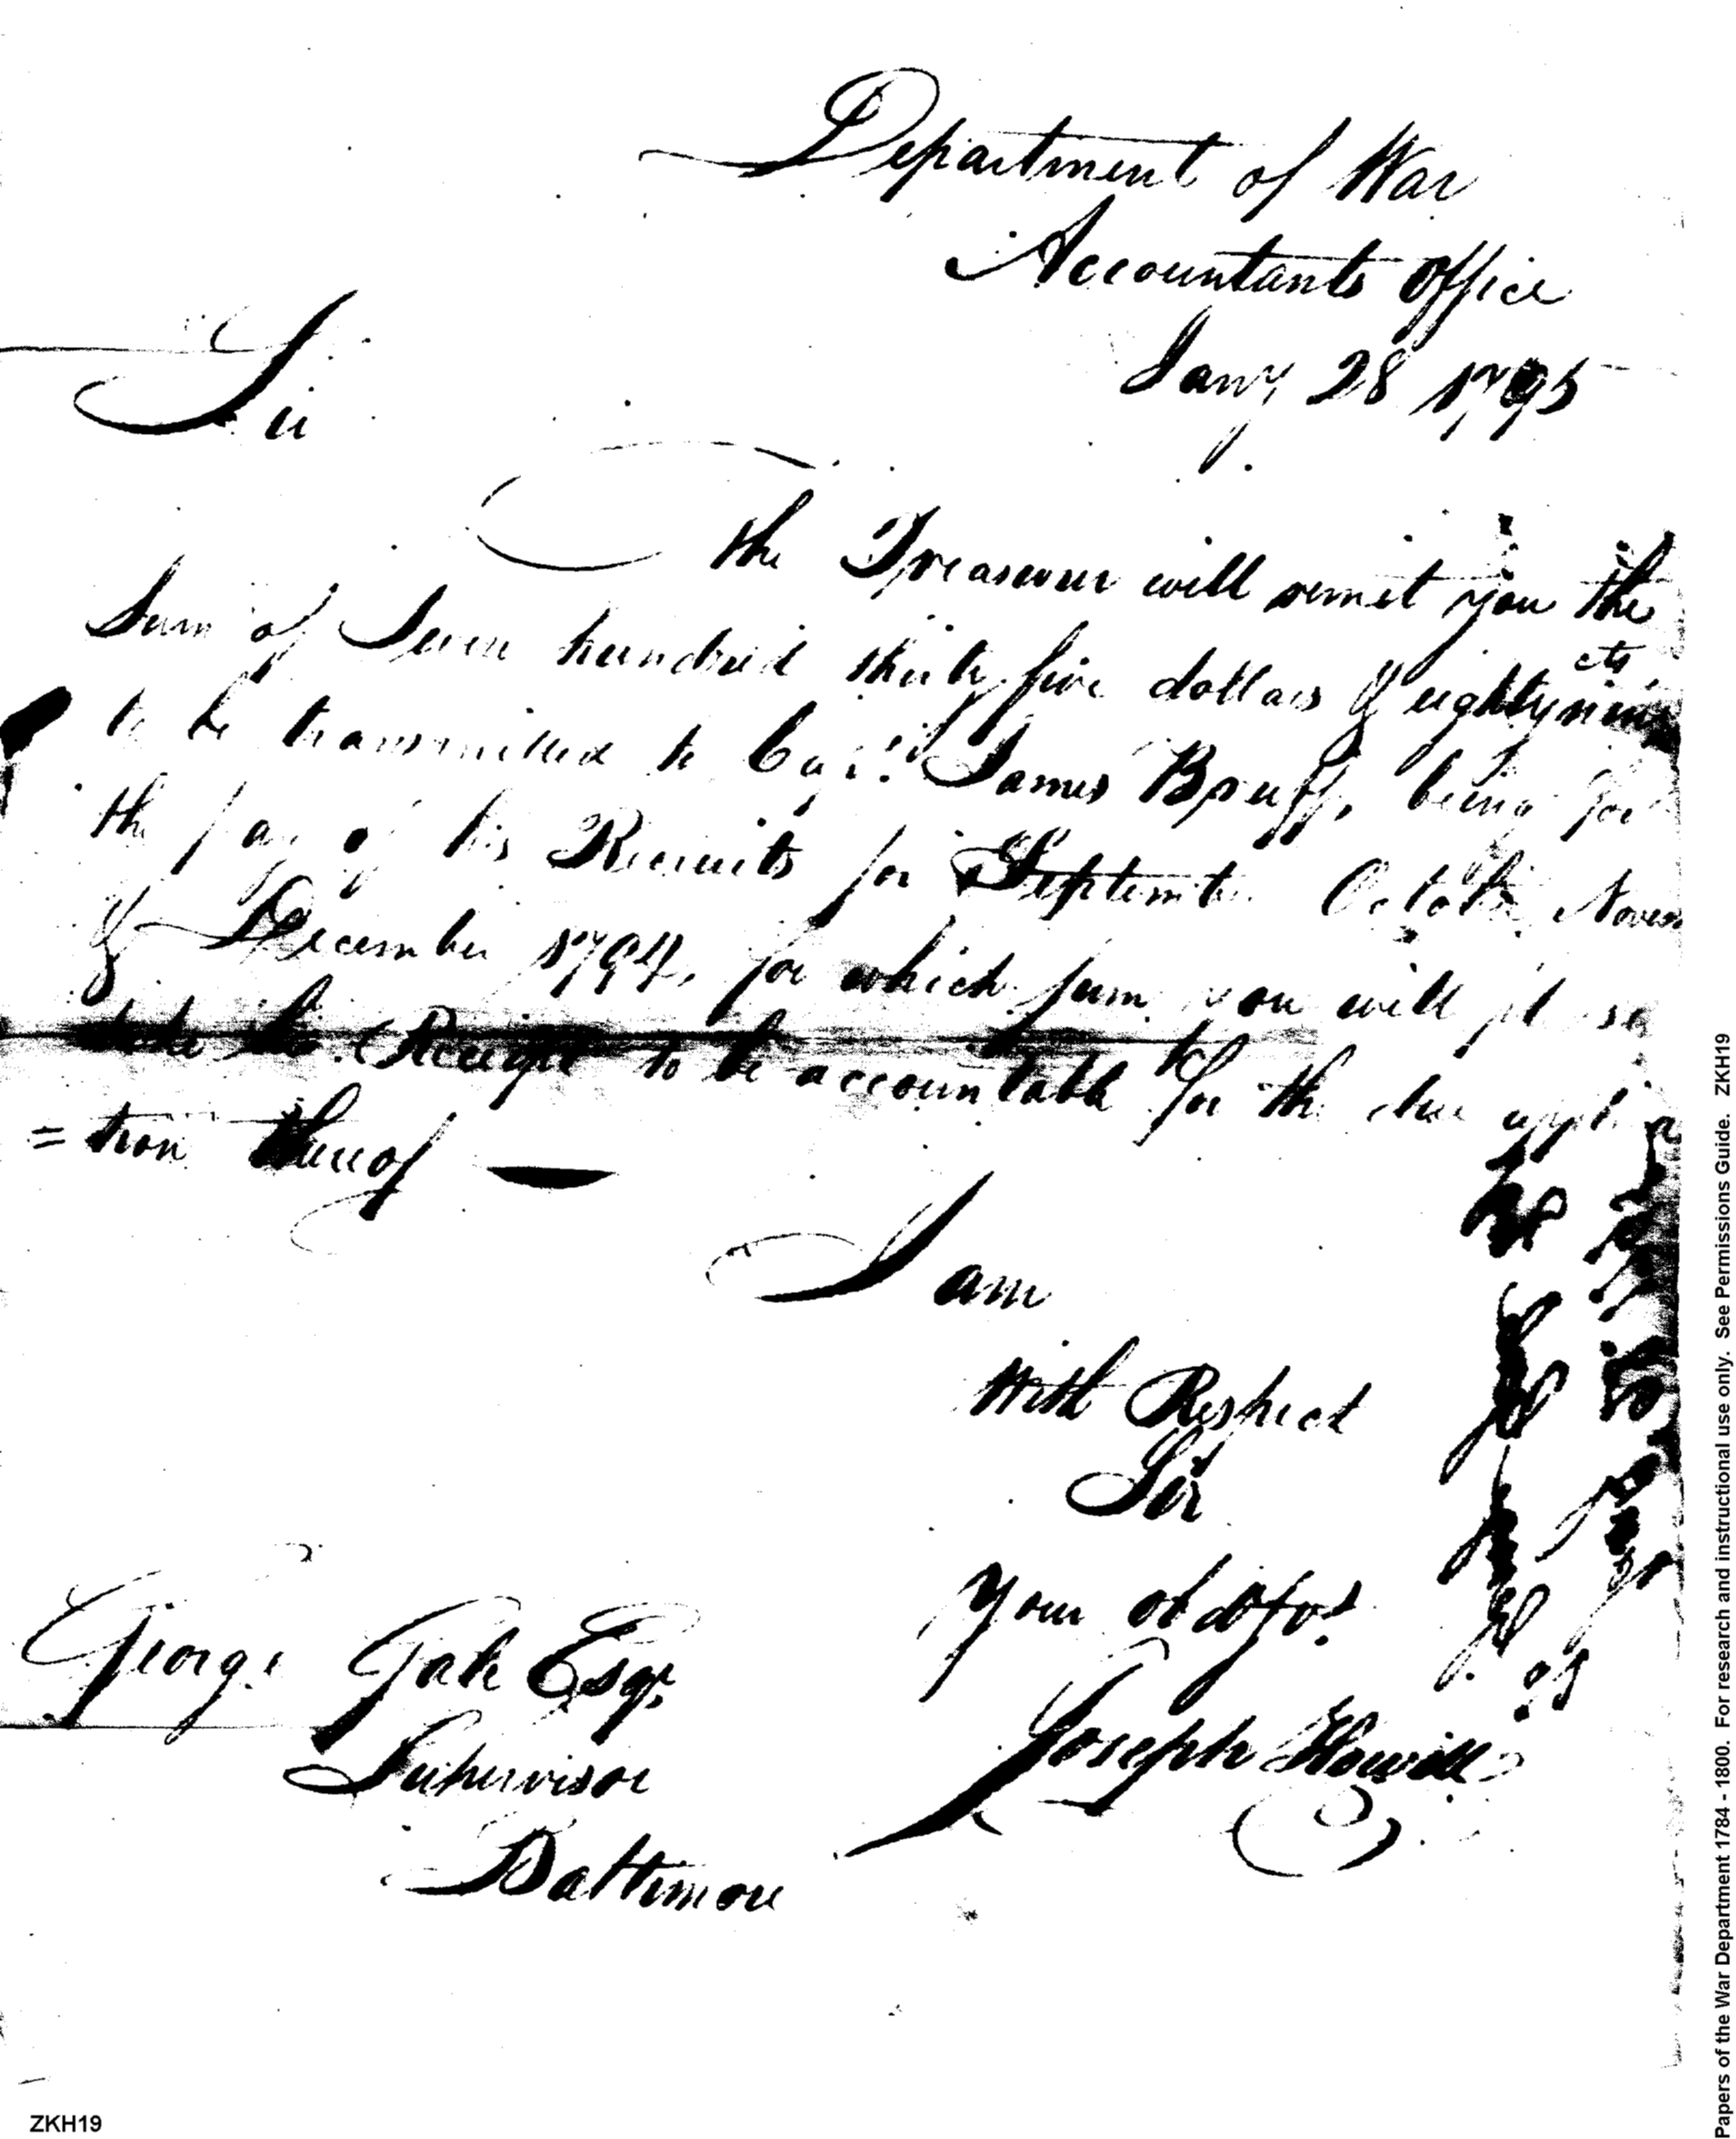 Department of War
Accountants Office
Jany 28 1795
Sir
the Treasurer will remit you the
Sum of Seven hundred thirty five dollars & eighty nine cts
to be transmitted to Capt. James Bruff, being for
the pay of his Recruits for September October Novem
& December 1794, for which sum you will please
take his Receipt to be accountable for the due applica
=tion thereof
I am
With Respect
Sir
Your obt
Joseph Howell
George Gale Esqr
Supervisor
Baltimore
ZKH19
Papers of the War Department 1784 - 1800. For research and instructional use only. See Permissions Guide. ZKH19